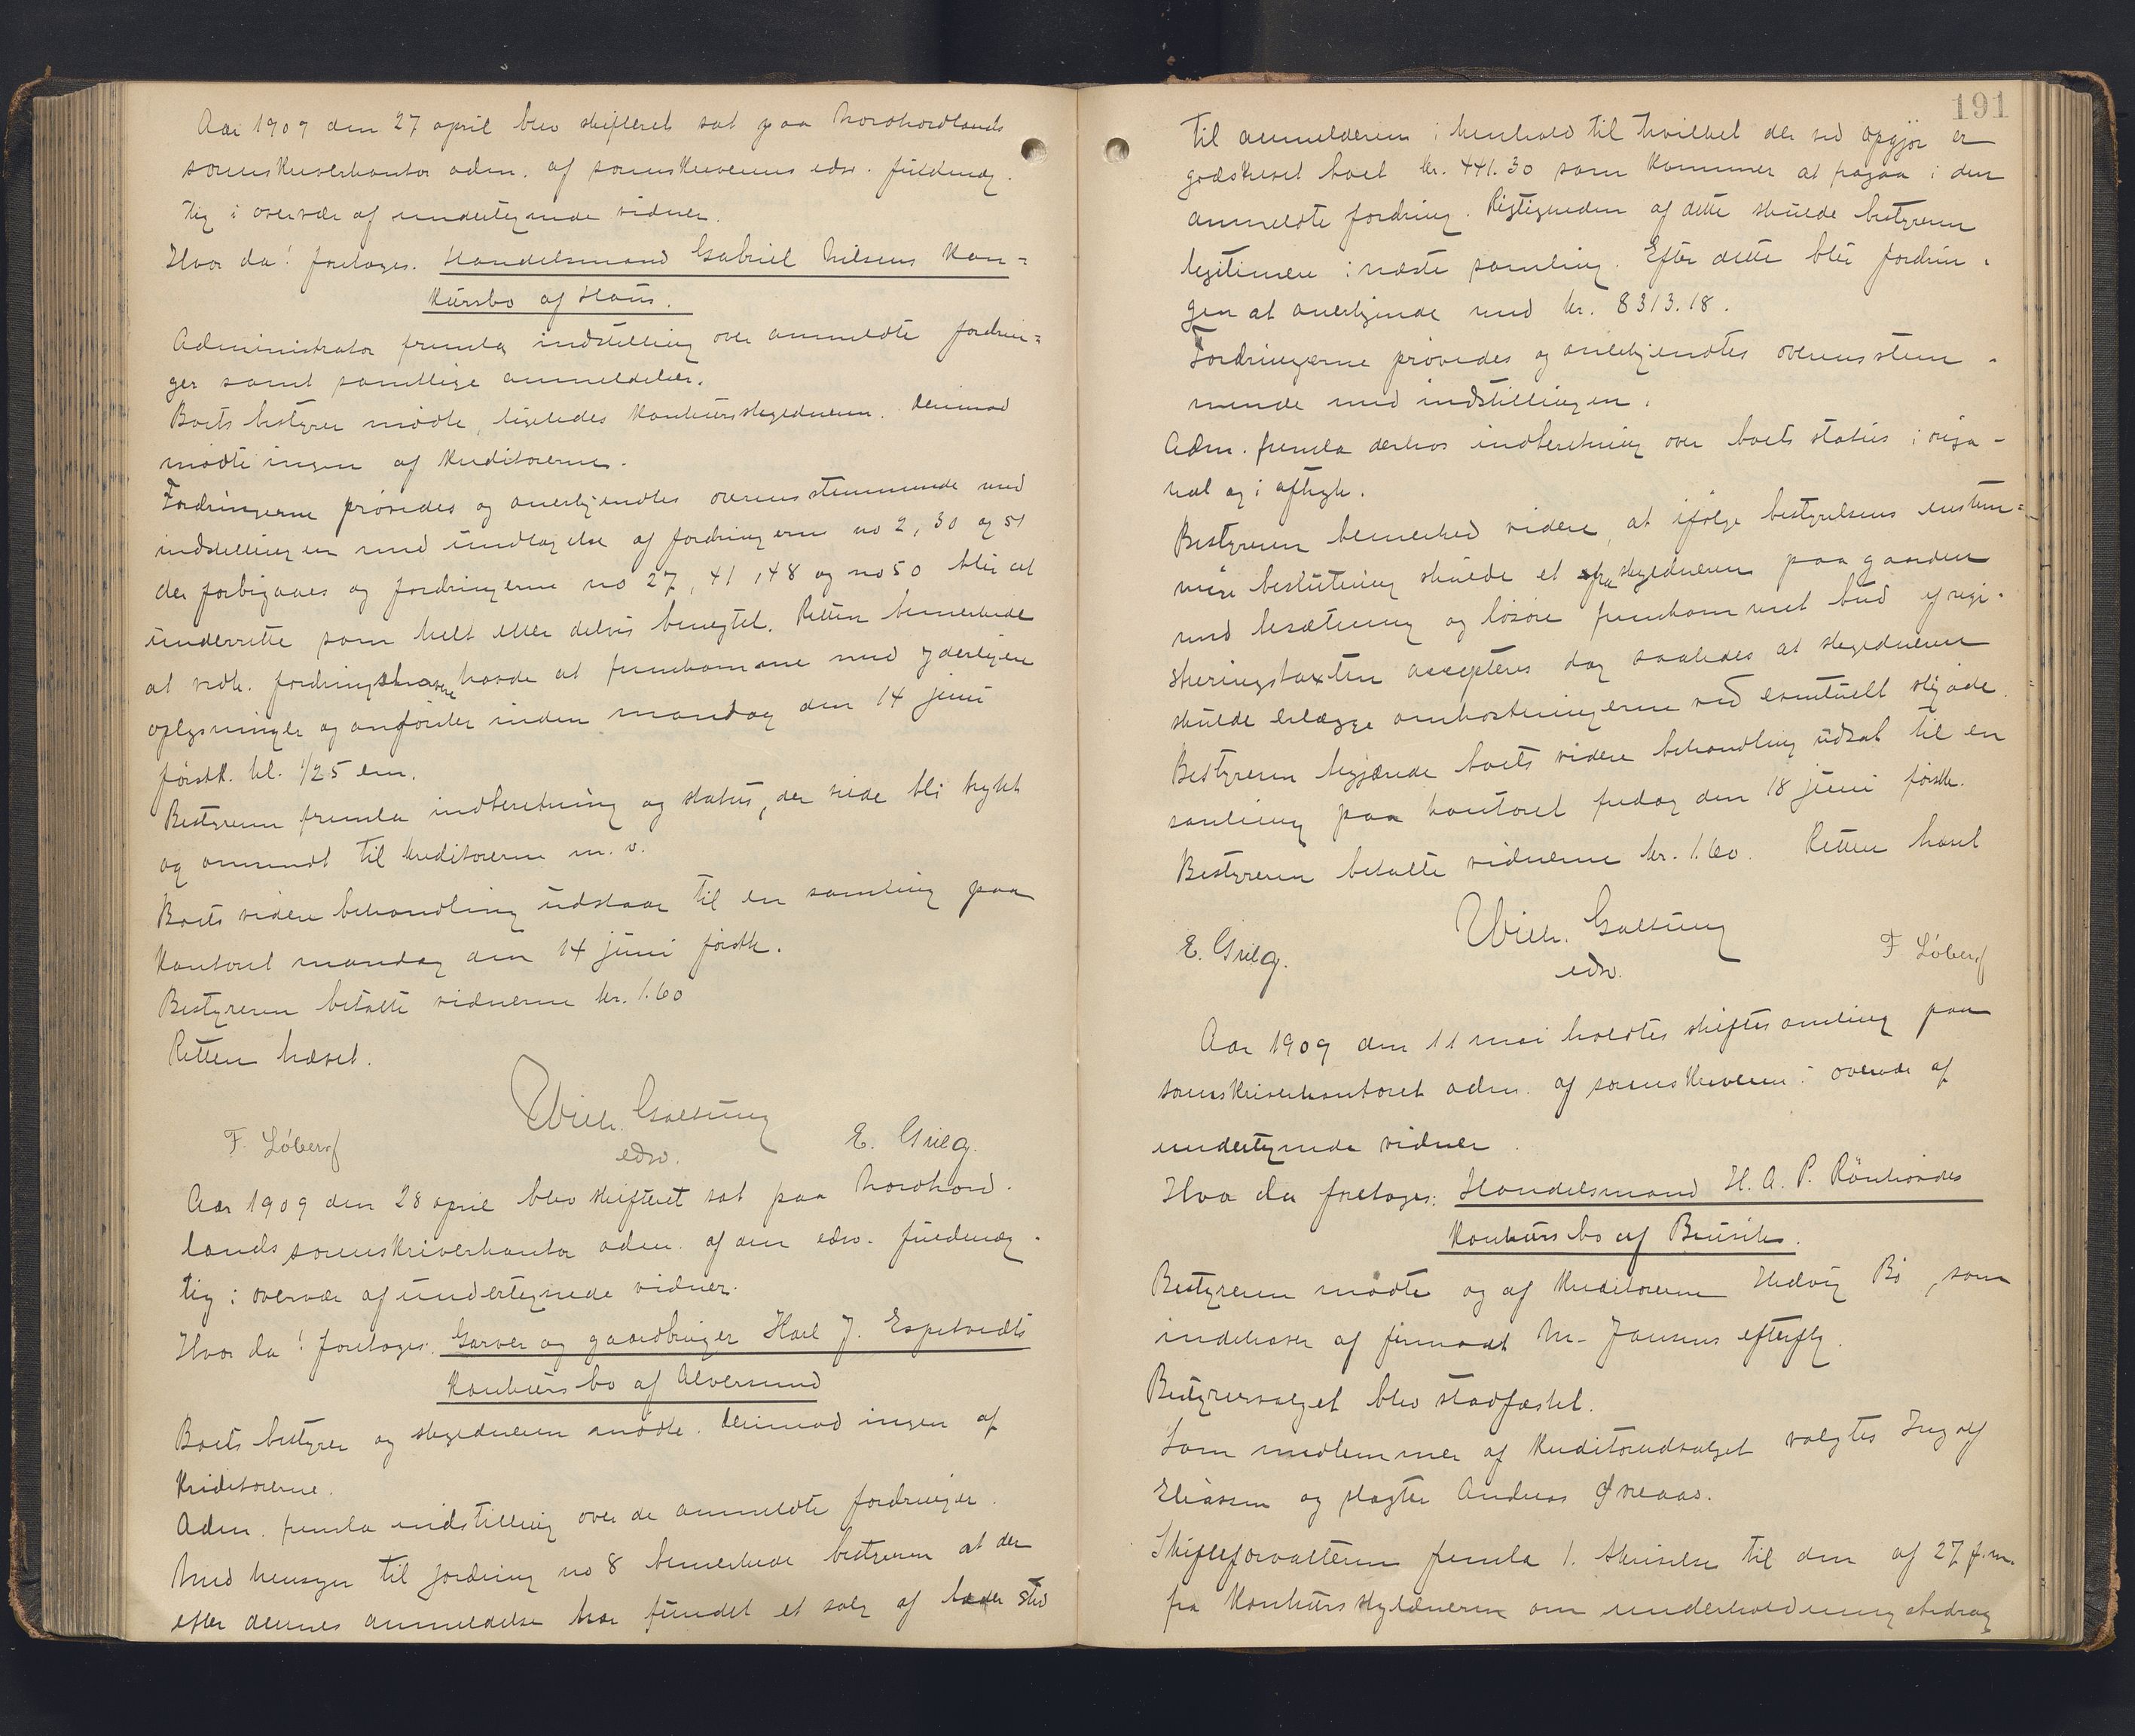 Aar 1909 den 27 april blev skifteret sat paa Nordhordlands
sorenskriverkontor adm. af sorenskriverens edsv. fuldmæg-
tig i overvær af undertegnede vidner.
Hvor da! foretoges. Handelsmand Gabriel Nilsens Kon=
kursbo af Haus.
Administrator fremla indstilling over anmeldte fordrin=
ger samt samtlige anmeldelser.
Boets bestyrer mødte, ligeledes konkursskyldneren. Derimod
mødte ingen af kreditorerne.
Fordringerne prøvedes og anerkjendtes overensstemmende med
indstillingen med undtagelse af fordringerne no 2, 30 og 51
der forbigaaes og fordringerne no 27, 41, 48 og no 50 blir at
underrette som helt eller delvis benegtet. Retten bemerkede
at vedk. fordringshavere havde at fremkomme med yderligere
oplysninger og anførsler inden mandag den 14 juni
førstk. kl. 1/2 5 em.
Bestyreren fremla indberetning og status, der vilde bli trykt
og omsendt til kreditorerne m. v.
Boets videre behandling udstaar til en samling paa
kontoret mandag den 14 juni førstk.
Bestyreren betalte vidnerne kr. 1.60
Retten hævet.
Wilh. Galtung
edsv.
F. Løberg
E. Grieg.
Aar 1909 den 28 april blev skifteret sat paa Nordhord-
lands sorenskriverkontor adm. af den edsv. fuldmæg-
tig i overvær af undertegnede vidner.
Hvor da! foretoges. Garver og gaardbruger Hall J. Espetvedts
Konkursbo af Alversund
Boets bestyrer og skyldneren mødte. Derimod ingen af
kreditorerne.
Adm. fremla indstilling over de anmeldte fordringer.
Med hensyn til fordring no 8 bemerkede bestyreren at der
efter dennes anmeldelse har fundet et salg af læder sted
191
til anmelderen i henhold til hvilket der ved opgjør er
godskrevet boet kr. 441.30 som kommer at fragaa i den
anmeldte fordring. Rigtigheden af dette skulde bestyreren
legitimere i næste samling. Efter dette blir fordrin-
gen at anerkjende med kr. 8313.18.
Fordringerne prøvedes og anerkjendtes overensstem-
mende med indstillingen.
Adm. fremla derhos indberetning over boets status i origi-
nal og i aftryk.
Bestyreren bemerked videre, at ifølge bestyrelsens enstem=
mige beslutning skulde et fra skyldneren paa gaarden
med besætning og løsøre fremkommet bud af regi-
streringstaxten accepteres dog saaledes at skyldneren
skulde erlægge omkostningerne ved eventuelt skjøde.
Bestyreren begjærede boets videre behandling udsat til en
samling paa kontoret fredag den 18 juni førstk.
Bestyreren betalte vidnerne kr. 1.60. Retten hævet
Wilh. Galtung
edsv.
E. Grieg.
F Løberg
Aar 1909 den 11 mai holdtes skiftesamling paa
sorenskriverkontoret adm. af sorenskriveren i overvær af
undertegnede vidner.
Hvor da foretoges: Handelsmand H. A. P. Rönhovdes
Konkursbo af Bruvik.
Bestyreren mødte og af kreditorerne Hedvig Bö, som
indehaver af firmaet M. Jansens efterflg.
Bestyrervalget blev stadfæstet.
Som medlemmer af kreditorudvalget valgtes Ingolf
Eliassen og slagter Andreas Øvreaas.
Skifteforvalteren fremla 1. Skrivelse til den af 27 f.m.
fra konkursskyldneren om underholdningsbidrag